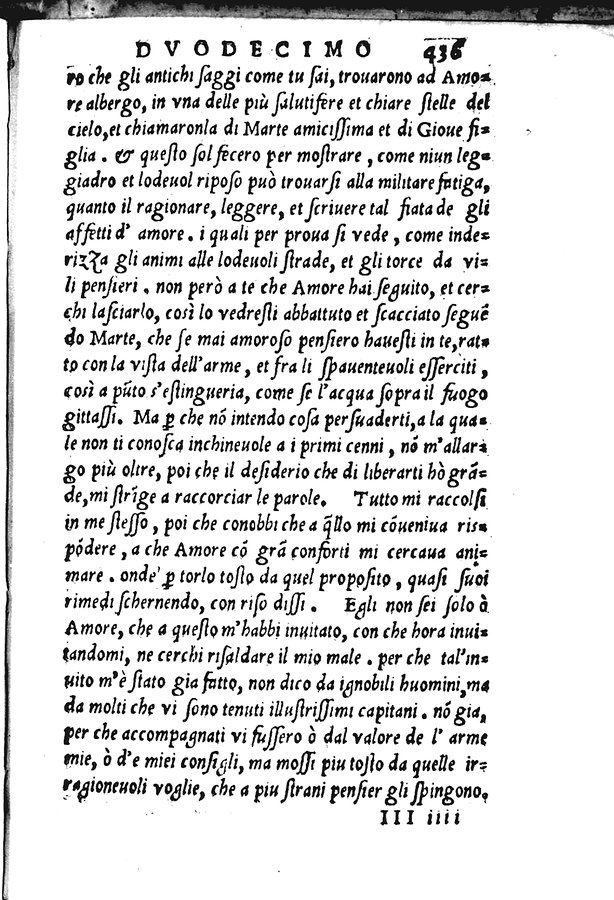 DVODECIMO 436
ro che gli antichi ſaggi come tu ſai, trouarono ad Amo-
re albergo, in vna delle più ſalutifere et chiare ſtelle del
cielo, et chiamaronla di Marte amiciſſima et di Gioue fi-
glia. & queſto ſol fecero per moſtrare, come niun leg-
giadro et lodeuol ripoſo può trouarſi alla militare fatiga,
quanto il ragionare, leggere, et ſcriuere tal fiata de gli
affetti d' amore. i quali per proua ſi vede, come inde-
rizza gli animi alle lodeuoli ſtrade, et gli torce da vi-
li penſieri. non però a te che Amore hai ſeguito, et cer-
chi laſciarlo, così lo vedreſti abbattuto et ſcacciato ſeguē
do Marte, che ſe mai amoroſo penſiero haueſti in te, rat-
to con la viſta dell'arme, et fra li ſpauenteuoli eſſerciti,
così a pūto s'eſtingueria, come ſe l'acqua ſopra il fuogo
gittaſſi. Ma ꝑ che nō intendo coſa perſuaderti, a la qua-
le non ti conoſca inchineuole a i primi cenni, nō m'allar-
go più oltre, poi che il deſiderio che di liberarti hò grā-
de, mi ſtrīge a raccorciar le parole. Tutto mi raccolſi
in me ſteſſo, poi che conobbi che a q̄llo mi cōueniua riſ-
pōdere, a che Amore cō grā conforti mi cercaua ani-
mare. onde' ꝑ torlo toſto da quel propoſito, quaſi ſuoi
rimedi ſchernendo, con riſo diſſi. Egli non ſei ſolo ò
Amore, che a queſto m'habbi inuitato, con che hora inui-
tandomi, ne cerchi riſaldare il mio male. per che tal'in-
uito m'è ſtato gia fatto, non dico da ignobili huomini, ma
da molti che vi ſono tenuti illuſtriſſimi capitani. nō gia,
per che accompagnati vi fuſſero ò dal valore de l' arme
mie, ò d'e miei conſigli, ma moſſi piu toſto da quelle ir-
ragioneuoli voglie, che a piu ſtrani penſier gli ſpingono,
III iiii